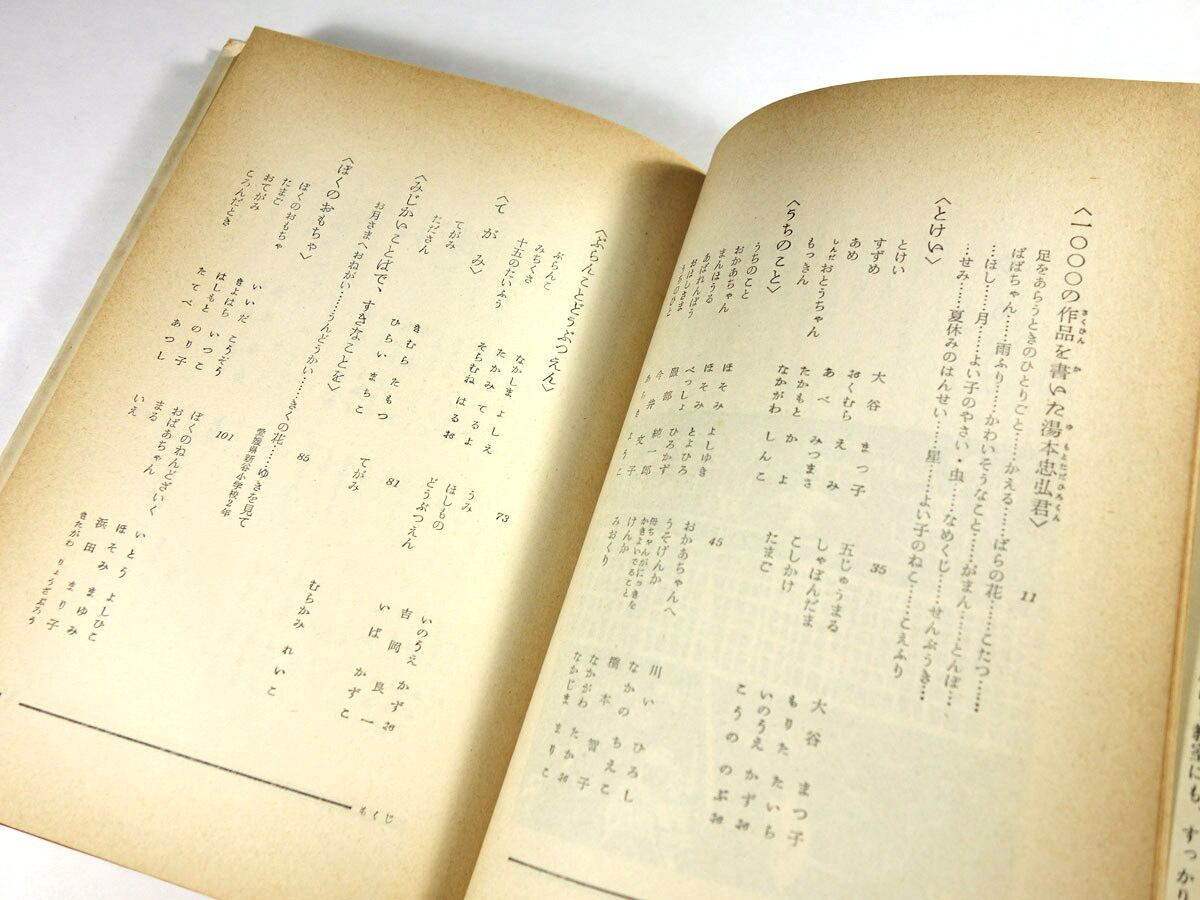 〈一〇〇〇の作品を書いた湯本忠弘君〉 11
足をあらうときのひとりごと……かえる……ばらの花……こたつ……
ばばちゃん……雨ふり……かわいそうなこと……がまん……とんぼ……
…ほし……月……よい子のやさい・虫……なめくじ……せんぷうき…
…せみ……夏休みのはんせい……星……よい子のねこ……こえふり
〈とけい〉 35
とけい 大谷 まつ子 五じゅうまる 大谷 まつ子
すずめ おくむら えみ しゃぼんだま もりた たいち
あめ あべ みつまさ こしかけ いのうえ かずお
しんだおとうちゃん たかもと かよ たまご こうの のぶお
もっきん なかがわ しんこ
〈うちのこと〉 45
うちのこと ほそみ よしゆき おかあちゃんへ 川い ひろし
おかあちゃん べっしょ とよひろ うそげんか なかの ちえこ
まんほうる 服部 ひろかず 母ちゃんがにっきをかきよいでること 橋本 智子
あばれんぼう 今井 純一郎 けんか なかがわ たかお
おほしさま あらき 文子 みおくり なかじま まりこ
うちのひと ようこ
〈ぶらんことどうぶつえん〉 73
ぶらんこ なかしま よしえ うみ いのうえ かずお
みちくさ たかみ てるよ ほしもの 吉岡 良一
十五のたいふう そらむね はるお どうぶつえん いば かずこ
〈てがみ〉 81
てがみ きむら たもつ てがみ むらかみ れいこ
たださん ひらい まちこ
〈みじかいことばで、すきなことを〉 85
お月さまへおねがい……うんどうかい……きくの花……ゆきを見て
愛媛県新谷小学校2年
〈ぼくのおもちゃ〉 101
ぼくのおもちゃ いいだ こうぞう ぼくのねんどざいく いとう よしひこ
たまご きよはち いつこ おばあちゃん ほそみ まゆみ
おてがみ はしもと のり子 まる 浜田 まり子
ころんだとき たてべ あつし いえ きたがわ りょうざぶろう
もくじ
教室にも、すっかり